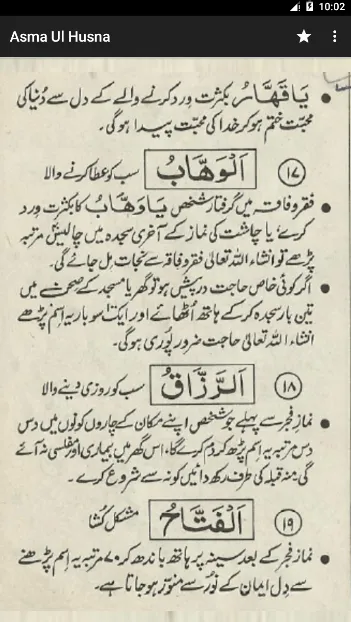 10:02
Asma Ul Husna
یَا قَھَّارُ بکثرت ورد کرنے والے کے دل سے دُنیا کی
محبّت ختم ہو کر خدا کی محبّت پیدا ہو گی۔
۱۷ اَلْوَھَّابُ سب کو عطا کرنے والا
فقر و فاقہ میں گرفتار شخص یَا وَھَّابُ کا بکثرت ورد
کرے یا چاشت کی نماز کے آخری سجدہ میں چالیس مرتبہ
پڑھے تو انشاء اللہ تعالیٰ فقر و فاقہ سے نجات مل جائے گی۔
اگر کوئی خاص حاجت درپیش ہو تو گھر یا مسجد کے صحن میں
تین بار سجدہ کر کے ہاتھ اُٹھائے اور ایک سو بار یہ اِسم پڑھے
انشاء اللہ تعالیٰ حاجت ضرور پُوری ہو گی۔
۱۸ اَلرَّزَّاقُ سب کو روزی دینے والا
نمازِ فجر سے پہلے جو شخص اپنے مکان کے چاروں کونوں میں دس
دس مرتبہ یہ اِسم پڑھ کر دم کرے گا، اس گھر میں بیماری اور مفلسی نہ آئے
گی منہ قبلہ کی طرف رکھے دائیں کونہ سے شروع کرے۔
۱۹ اَلْفَتَّاحُ مشکل کُشا
نماز فجر کے بعد سینہ پر ہاتھ باندھ کر ۷۰ مرتبہ یہ اِسم پڑھنے
سے دِل ایمان کے نُور سے منوّر ہو جاتا ہے۔